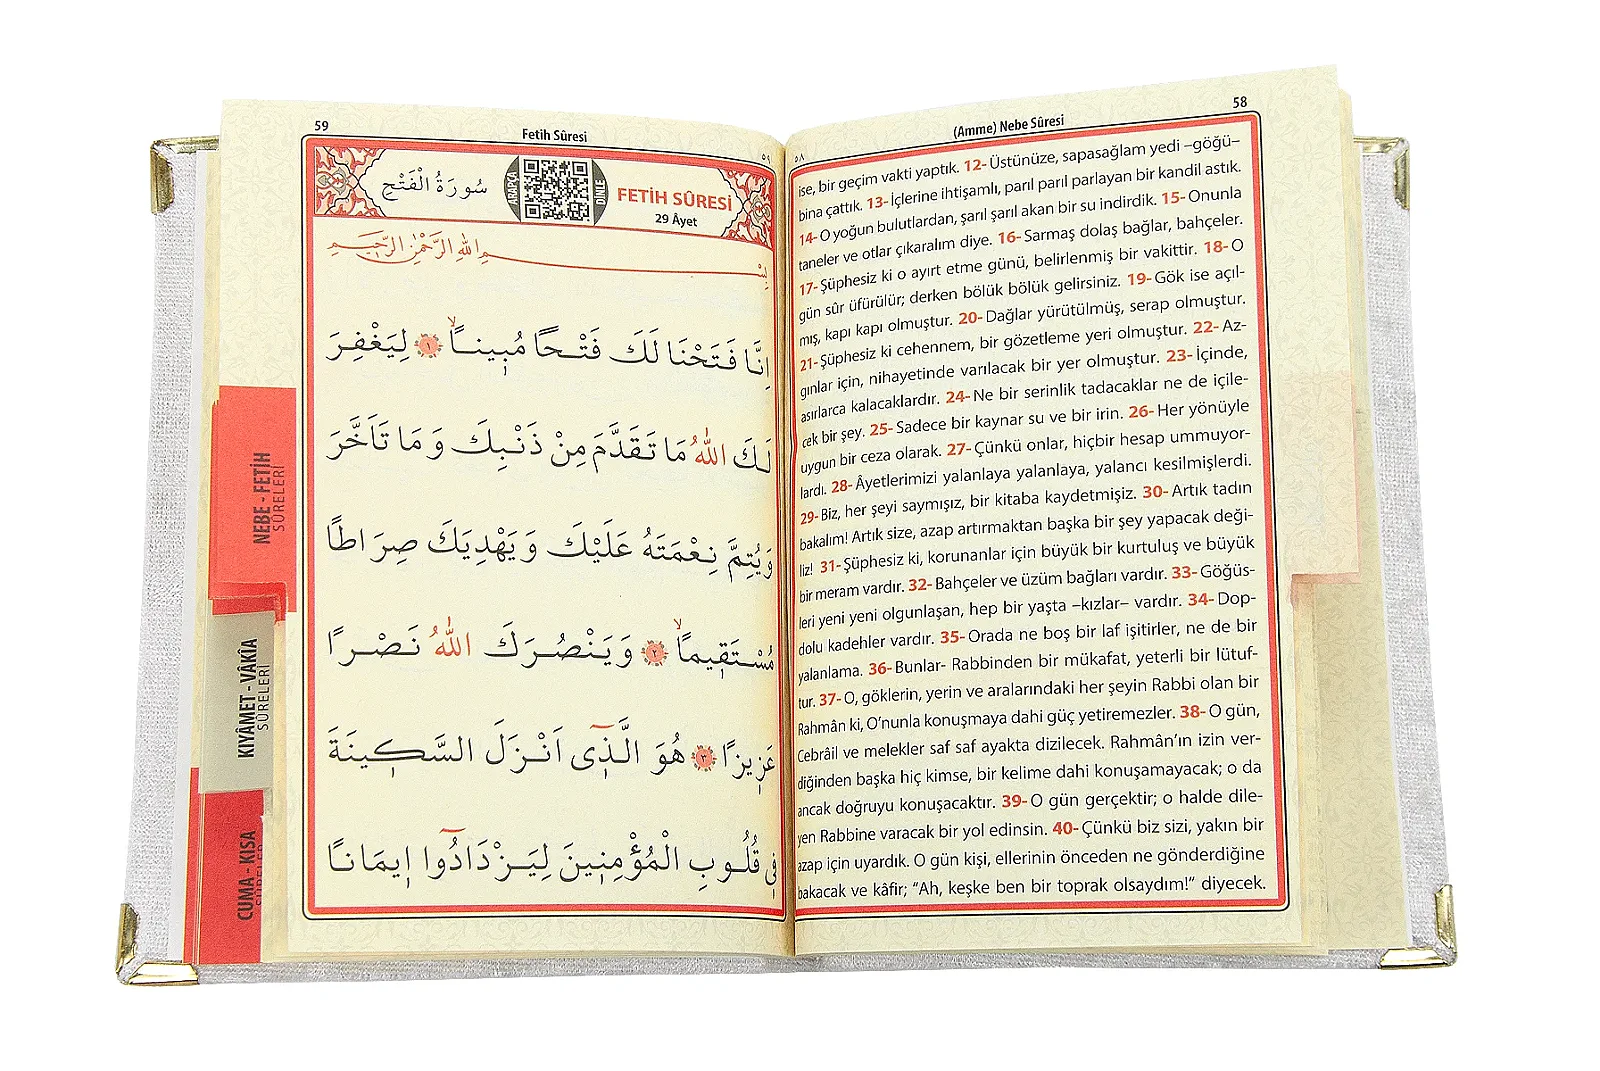 58
(Amme) Nebe Sûresi
٥٨
ise, bir geçim vakti yaptık. 12- Üstünüze, sapasağlam yedi –göğü–
bina çattık. 13- İçlerine ihtişamlı, parıl parıl parlayan bir kandil astık.
14- O yoğun bulutlardan, şarıl şarıl akan bir su indirdik. 15- Onunla
taneler ve otlar çıkaralım diye. 16- Sarmaş dolaş bağlar, bahçeler.
17- Şüphesiz ki o ayırt etme günü, belirlenmiş bir vakittir. 18- O
gün sûr üfürülür; derken bölük bölük gelirsiniz. 19- Gök ise açıl-
mış, kapı kapı olmuştur. 20- Dağlar yürütülmüş, serap olmuştur.
21- Şüphesiz ki cehennem, bir gözetleme yeri olmuştur. 22- Az-
gınlar için, nihayetinde varılacak bir yer olmuştur. 23- İçinde,
asırlarca kalacaklardır. 24- Ne bir serinlik tadacaklar ne de içile-
cek bir şey. 25- Sadece bir kaynar su ve bir irin. 26- Her yönüyle
uygun bir ceza olarak. 27- Çünkü onlar, hiçbir hesap ummuyor-
lardı. 28- Âyetlerimizi yalanlaya yalanlaya, yalancı kesilmişlerdi.
29- Biz, her şeyi saymışız, bir kitaba kaydetmişiz. 30- Artık tadın
bakalım! Artık size, azap artırmaktan başka bir şey yapacak deği-
liz! 31- Şüphesiz ki, korunanlar için büyük bir kurtuluş ve büyük
bir meram vardır. 32- Bahçeler ve üzüm bağları vardır. 33- Göğüs-
leri yeni yeni olgunlaşan, hep bir yaşta –kızlar– vardır. 34- Dop-
dolu kadehler vardır. 35- Orada ne boş bir laf işitirler, ne de bir
yalanlama. 36- Bunlar- Rabbinden bir mükafat, yeterli bir lütuf-
tur. 37- O, göklerin, yerin ve aralarındaki her şeyin Rabbi olan bir
Rahmân ki, O'nunla konuşmaya dahi güç yetiremezler. 38- O gün,
Cebrâil ve melekler saf saf ayakta dizilecek. Rahmân'ın izin ver-
diğinden başka hiç kimse, bir kelime dahi konuşamayacak; o da
ancak doğruyu konuşacaktır. 39- O gün gerçektir; o halde dile-
yen Rabbine varacak bir yol edinsin. 40- Çünkü biz sizi, yakın bir
azap için uyardık. O gün kişi, ellerinin önceden ne gönderdiğine
bakacak ve kâfir; "Ah, keşke ben bir toprak olsaydım!" diyecek.
59
Fetih Sûresi
٥٩
سُورَةُ الْفَتْحِ
ARAPÇA
DİNLE
FETİH SÛRESİ
29 Âyet
بِسْمِ اللهِ الرَّحْمٰنِ الرَّحِيمِ
اِنَّا فَتَحْنَا لَكَ فَتْحًا مُبِينًاۙ ١ لِيَغْفِرَ
لَكَ اللّٰهُ مَا تَقَدَّمَ مِنْ ذَنْبِكَ وَمَا تَاَخَّرَ
وَيُتِمَّ نِعْمَتَهُ عَلَيْكَ وَيَهْدِيَكَ صِرَاطًا
مُسْتَقِيمًاۙ ٢ وَيَنْصُرَكَ اللّٰهُ نَصْرًا
عَزِيزًا ٣ هُوَ الَّذ۪ٓى اَنْزَلَ السَّكِينَةَ
فِى قُلُوبِ الْمُؤْمِنِينَ لِيَزْدَادُٓوا اِيمَانًا
NEBE - FETİH
SÛRELERİ
KIYÂMET - VÂKIA
SÛRELERİ
CUMA - KISA